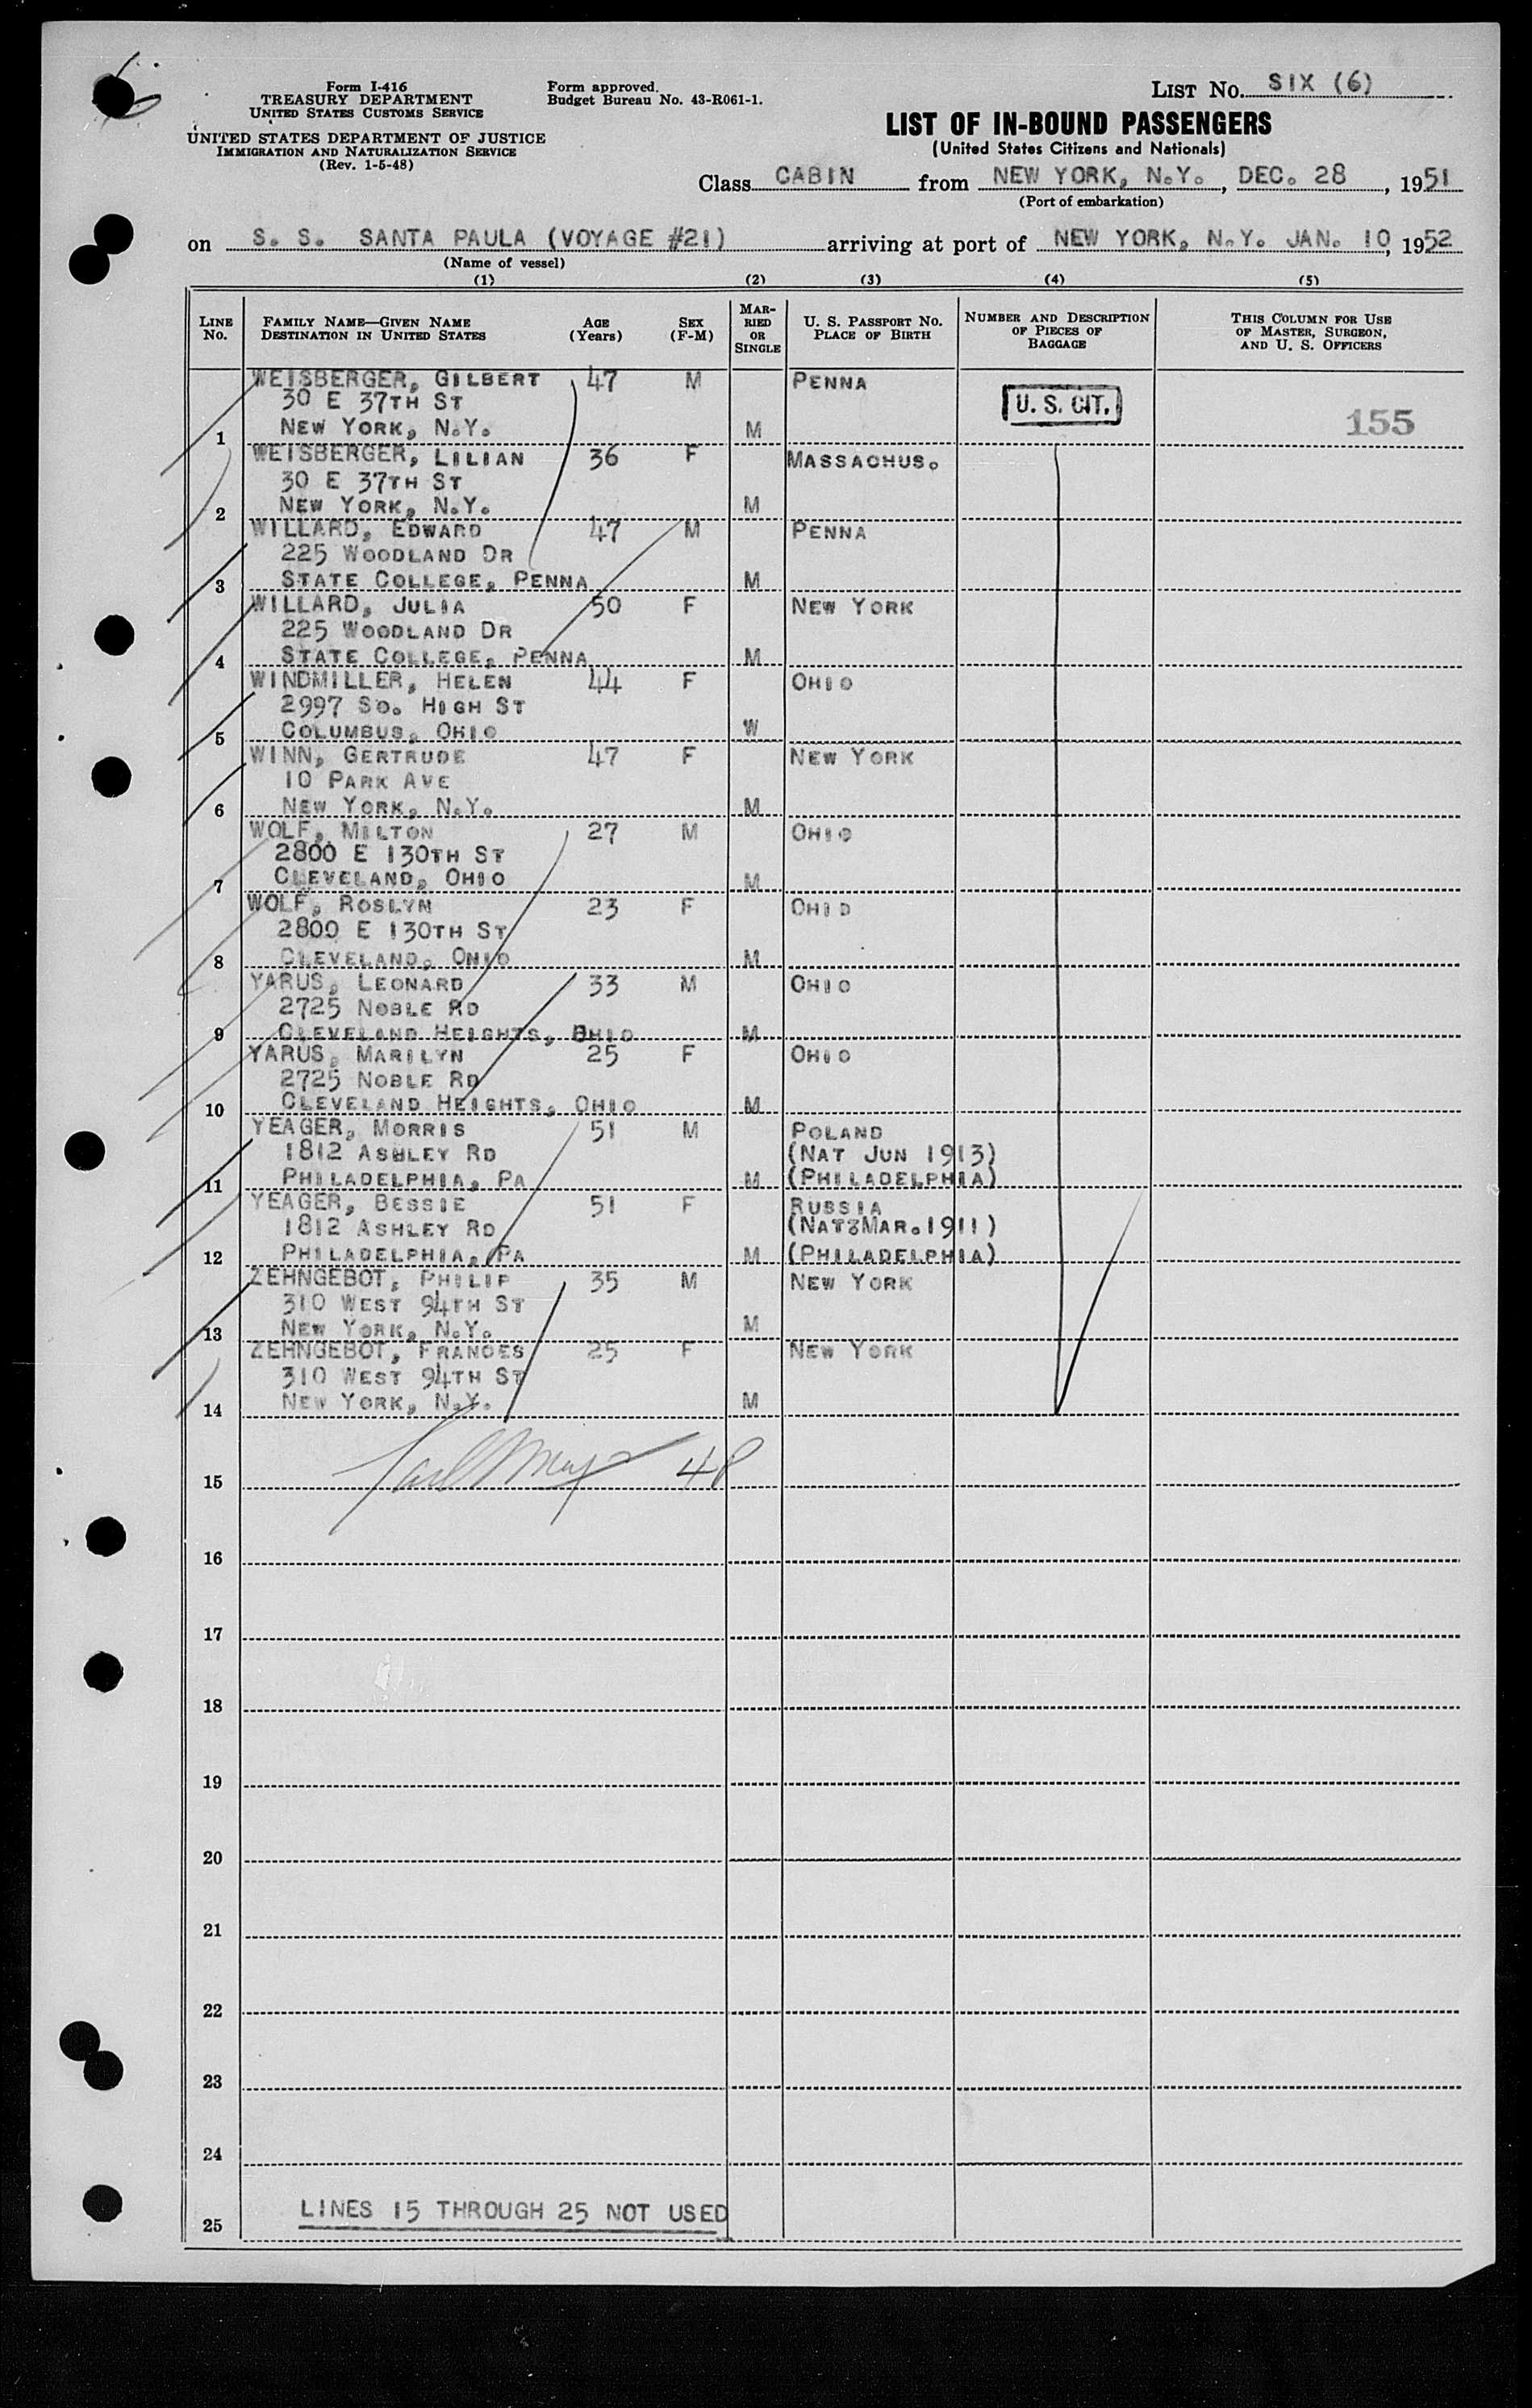 Form I-416
TREASURY DEPARTMENT
UNITED STATES CUSTOMS SERVICE
UNITED STATES DEPARTMENT OF JUSTICE
IMMIGRATION AND NATURALIZATION SERVICE
(Rev. 1-5-48)
Form approved.
Budget Bureau No. 43-R061-1.
LIST NO. SIX (6)
LIST OF IN-BOUND PASSENGERS
(United States Citizens and Nationals)
Class CABIN from NEW YORK, N.Y., DEC. 28, 1951
(Port of embarkation)
on S. S. SANTA PAULA (VOYAGE #21) arriving at port of NEW YORK, N.Y. JAN. 10, 1952
(Name of vessel)
(1) (2) (3) (4) (5)
LINE NO. FAMILY NAME—GIVEN NAME DESTINATION IN UNITED STATES AGE (Years) SEX (F-M) MARRIED OR SINGLE U. S. PASSPORT NO. PLACE OF BIRTH NUMBER AND DESCRIPTION OF PIECES OF BAGGAGE THIS COLUMN FOR USE OF MASTER, SURGEON, AND U. S. OFFICERS
WEISBERGER, GILBERT 47 M PENNA
30 E 37TH ST U. S. CIT. 155
1 NEW YORK, N.Y. M
WEISBERGER, LILIAN 36 F MASSACHUS.
30 E 37TH ST
2 NEW YORK, N.Y. M
WILLARD, EDWARD 47 M PENNA
225 WOODLAND DR
3 STATE COLLEGE, PENNA M
WILLARD, JULIA 50 F NEW YORK
225 WOODLAND DR
4 STATE COLLEGE, PENNA M
WINDMILLER, HELEN 44 F OHIO
2997 SO. HIGH ST
5 COLUMBUS, OHIO W
WINN, GERTRUDE 47 F NEW YORK
10 PARK AVE
6 NEW YORK, N.Y. M
WOLF, MILTON 27 M OHIO
2800 E 130TH ST
7 CLEVELAND, OHIO M
WOLF, ROSLYN 23 F OHIO
2800 E 130TH ST
8 CLEVELAND, OHIO M
YARUS, LEONARD 33 M OHIO
2725 NOBLE RD
9 CLEVELAND HEIGHTS, OHIO M
YARUS, MARILYN 25 F OHIO
2725 NOBLE RD
10 CLEVELAND HEIGHTS, OHIO M
YEAGER, MORRIS 51 M POLAND
1812 ASHLEY RD (NAT JUN 1913)
11 PHILADELPHIA, PA M (PHILADELPHIA)
YEAGER, BESSIE 51 F RUSSIA
1812 ASHLEY RD (NAT:MAR.1911)
12 PHILADELPHIA, PA M (PHILADELPHIA)
ZEHNGEBOT, PHILIP 35 M NEW YORK
310 WEST 94TH ST
13 NEW YORK, N.Y. M
ZEHNGEBOT, FRANCES 25 F NEW YORK
310 WEST 94TH ST
14 NEW YORK, N.Y. M
15
16
17
18
19
20
21
22
23
24
25 LINES 15 THROUGH 25 NOT USED